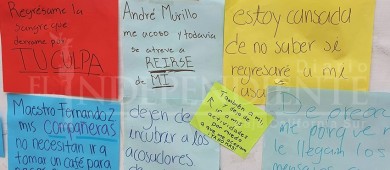 Regrésame la
sangre que
derrame por
TU CULPA
André Murillo
me acoso y todavía
se atreve a
REIRSE
de
MI
estoy cansada
de no saber se
regresaré a mi
casa
Maestro Fernando Z
mis compañeras
no necesitan ir a
tomar un café para
dejen de
encubrir a los
acosadores
También
a mi
a mis
actividades
por miedo
me
me porque n
le lleguen los
mensajes
EL INDEPENDIENTE